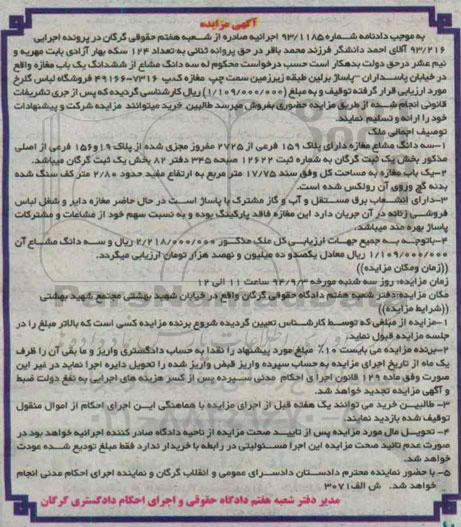 آگهی مزایده
به موجب دادنامه شماره ۹۳/۱۱۸۵ اجرائیه صادره از شعبه هفتم حقوقی گرگان در پرونده اجرایی
۹۳/۲۱۶ آقای احمد دانشگر فرزند محمد باقر در حق پروانه ثنائی به تعداد ۱۲۴ سکه بهار آزادی بابت مهریه و
نیم عشر در حق دولت بدهکار است حسب درخواست محکوم له سه دانگ مشاع از ششدانگ یک باب مغازه واقع
در خیابان پاسداران -پاساژ برلین طبقه زیرزمین سمت چپ مغازه کدپ ۷۳۱۶-۴۹۱۶۶ فروشگاه لباس گلرخ
مورد ارزیابی قرار گرفته توقیف و به مبلغ (۱/۱۰۹/۰۰۰/۰۰۰) ریال کارشناسی گردیده که پس از جری تشریفات
قانونی انجام شده از طریق مزایده حضوری بفروش میرسد طالبین خرید میتوانند مزایده شرکت و پیشنهادات
خود را ارائه و تسلیم نمایند.
توصیف اجمالی ملک
۱-سه دانگ مشاع مغازه دارای پلاک ۱۵۹ فرعی از ۲۷۲۵ مفروز مجزی شده از پلاک ۱۹و۱۵۶ فرعی از اصلی
مذکور بخش یک ثبت گرگان به شماره ثبت ۱۲۶۲۲ صفحه ۳۴۵ دفتر ۸۲ بخش یک ثبت گرگان میباشد.
۲-یک باب مغازه به مساحت کل وفق سند ۱۷/۷۵ متر مربع به ارتفاع مفید حدود ۲/۸۰ متر کف سنگ شده
بدنه گچ و روی آن رولکس شده است.
۳-دارای انشعاب برق مستقل و آب و گاز مشترک با پاساژ است در حال حاضر مغازه دایر و شغل لباس
فروشی زنانه در آن جریان دارد این مغازه فاقد پارکینگ بوده و به نسبت سهم خود از مشاعات و مشترکات
پاساژ بهره مند میباشد.
۴-باتوجه به جمیع جهات ارزیابی کل ملک مذکور ۲/۲۱۸/۰۰۰/۰۰۰ ریال و سه دانگ مشاع آن
۱/۱۰۹/۰۰۰/۰۰۰ ریال معادل یکصدو ده میلیون و نهصد هزار تومان ارزیابی میگردد.
((زمان ومکان مزایده))
زمان مزایده: روز سه شنبه مورخه ۹۴/۹/۳ ساعت ۱۱ الی ۱۲
مکان مزایده:دفتر شعبه هفتم دادگاه حقوقی گرگان واقع در خیابان شهید بهشتی مجتمع شهید بهشتی
((شرایط مزایده))
۱-مزایده از مبلغی که توسط کارشناس تعیین گردیده شروع برنده مزایده کسی است که بالاتر مبلغ را در
جلسه مزایده قبول نماید
۲-برنده مزایده می بایست ۱۰٪ مبلغ مورد پیشنهاد را نقدا به حساب دادگستری واریز و ما بقی آن را ظرف
یک ماه از تاریخ اجرای مزایده به حساب سپرده واریز قبض واریز شده را تحویل دایره اجرا نماید در غیر این
صورت وفق ماده ۱۲۹ قانون اجرای احکام مدنی سپرده پس از کسر هزینه های اجرایی به نفع دولت ضبط
و آگهی مزایده تجدید خواهد شد.
۳- طالبین خرید می توانند یک هفته قبل از اجرای مزایده با هماهنگی این اجرای احکام از اموال منقول
توقیف شده بازدید نمایند.
۴- تحویل مال مورد مزایده پس از تایید صحت مزایده از ناحیه دادگاه صادر کننده اجرائیه خواهد بود در
صورت عدم تائید صحت مزایده این اجرا مسئولیتی در رابطه با خریدار ندارد فقط مبلغ تودیع شده عودت
خواهد شد.
۵- با حضور نماینده محترم دادستان دادسرای عمومی و انقلاب گرگان و نماینده اجرای احکام مدنی انجام
خواهد شد. ش الف:۳۰۷۱
مدیر دفتر شعبه هفتم دادگاه حقوقی و اجرای احکام دادگستری گرگان